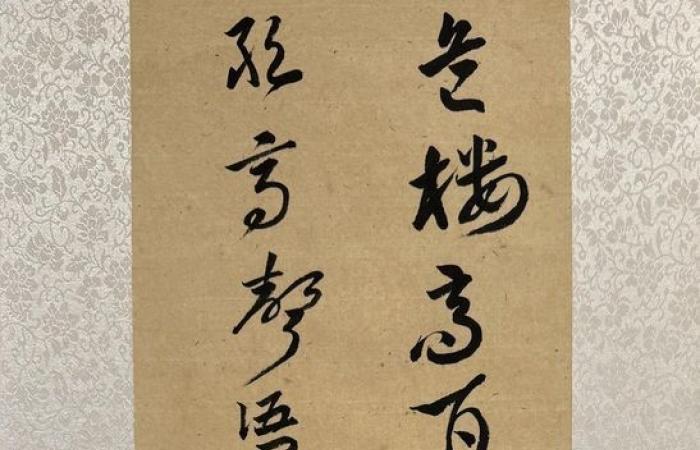 危樓高百
敢高聲語